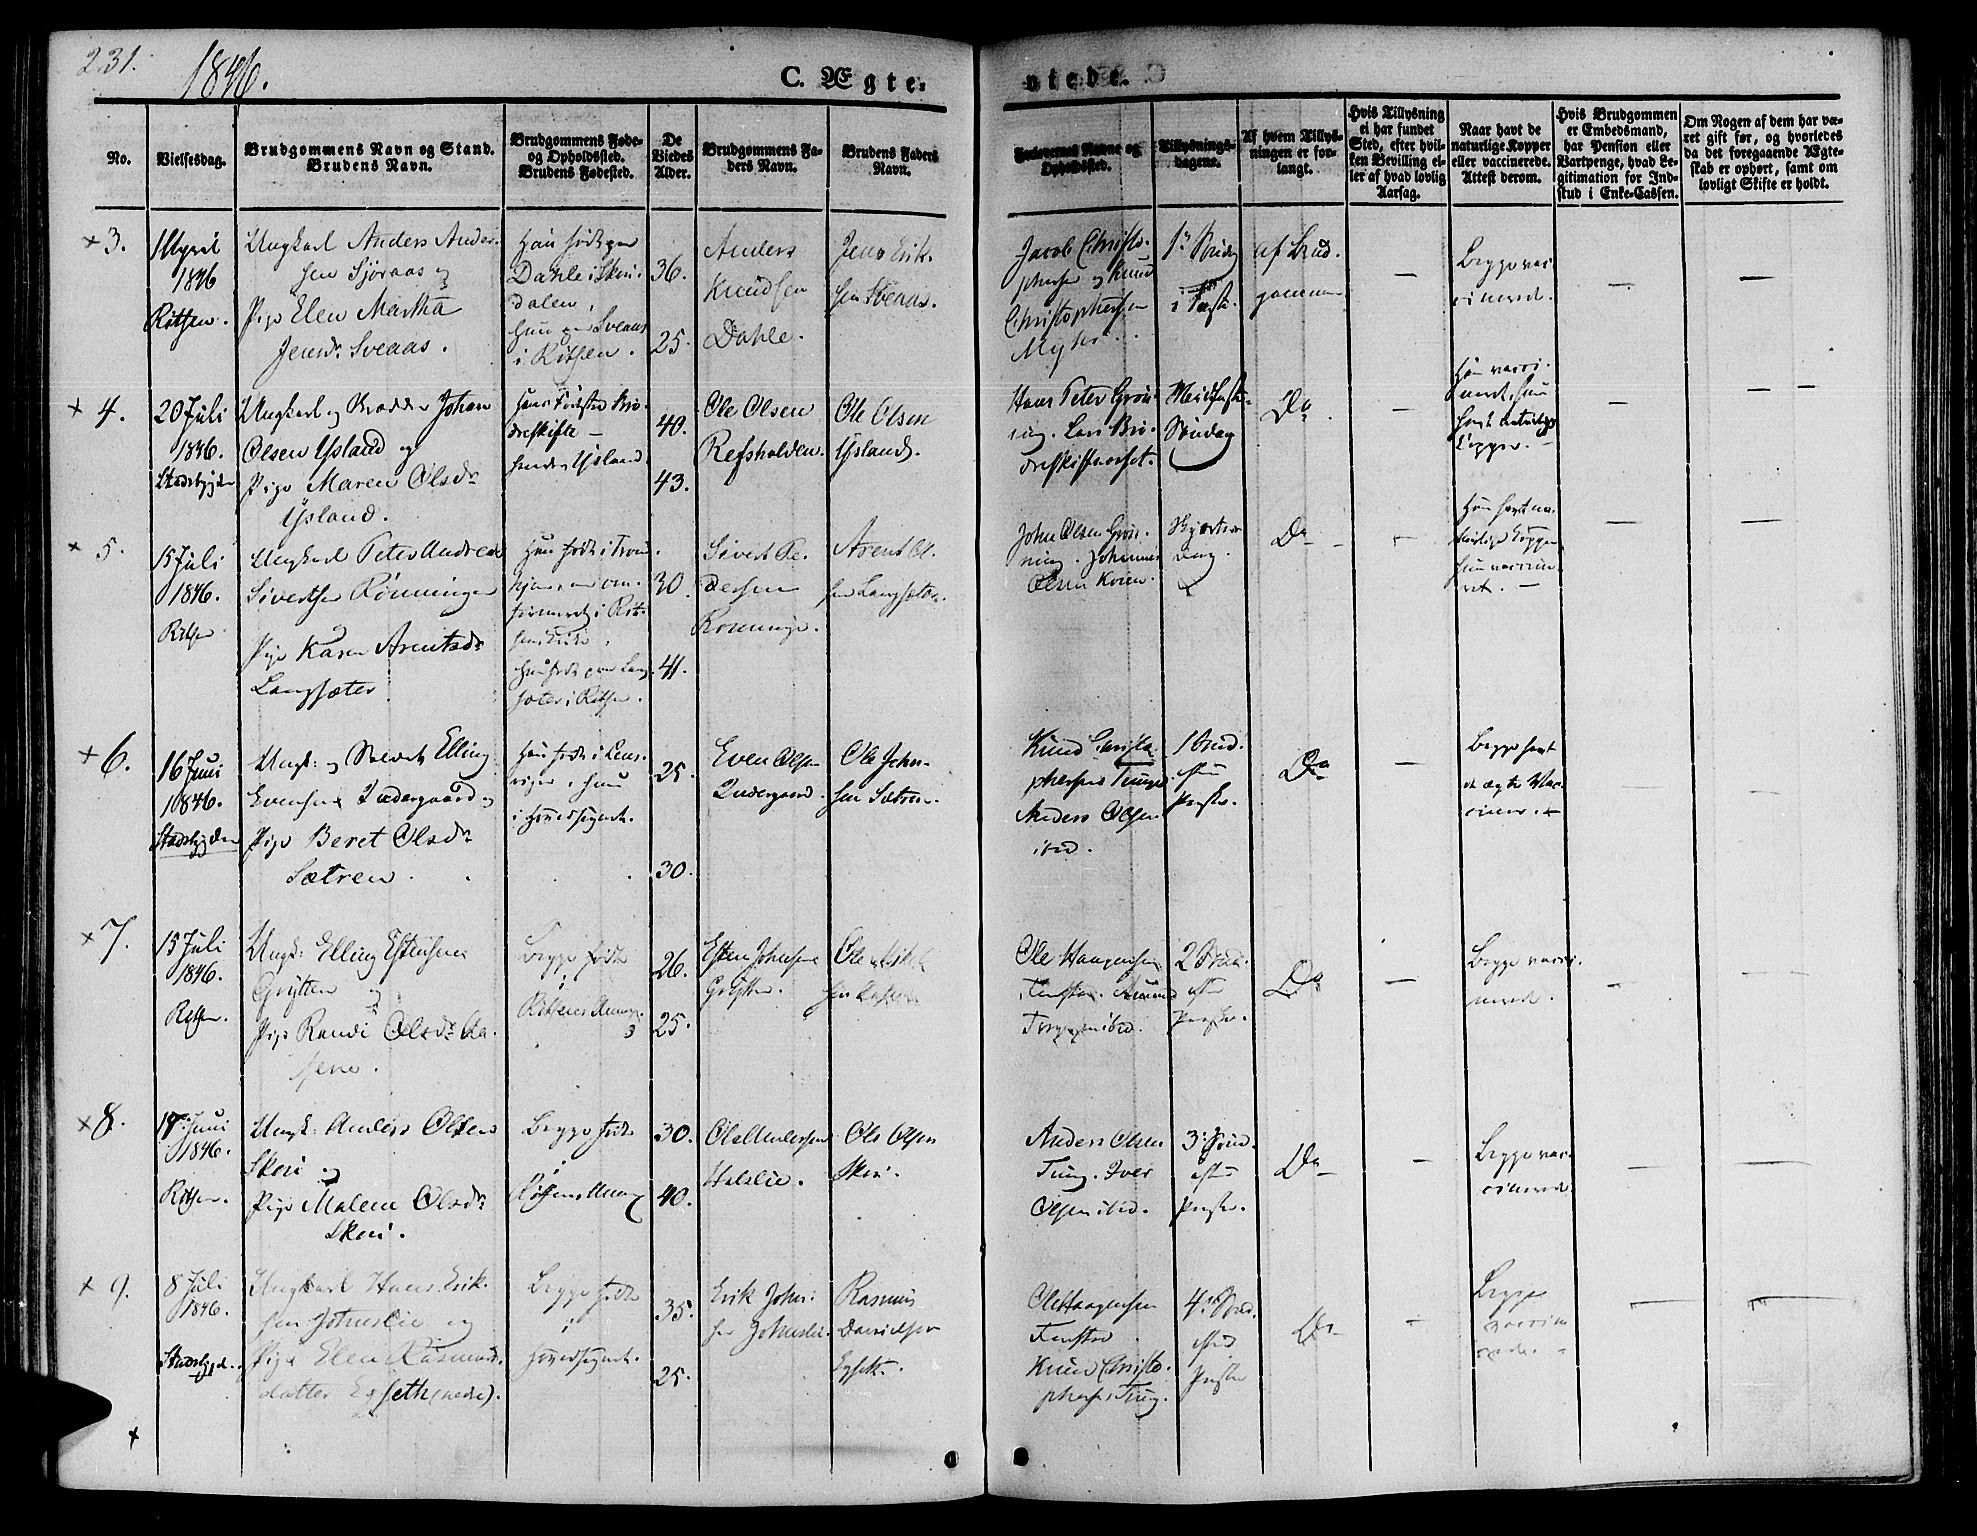 231.
1846.
C. Ægte-
viede.
No.
Vielsesdag.
Brudgommens Navn og Stand.
Brudens Navn.
Brudgommens Føde-
og Opholdssted.
Brudens Fødested.
De
Viedes
Alder.
Brudgommens Fa-
ders Navn.
Brudens Faders
Navn.
Forlovernes Navne og
Opholdssted.
Tillysnings-
dagene.
Af hvem Tillys-
ningen er for-
langt.
Hvis Tillysning
ei har fundet
Sted, efter hvil-
ken Bevilling el-
ler af hvad lovlig
Aarsag.
Naar havt de
naturlige Kopper
eller vaccinerede.
Attest derom.
Hvis Brudgommen
er Embedsmand,
har Pension eller
Vartpenge, hvad Le-
gitimation for Ind-
skud i Enke-Cassen.
Om Nogen af dem har væ-
ret gift før, og hvorledes
da det foregaaende Ægte-
skab er ophørt, samt om
lovligt Skifte er holdt.
× 3.
1 April
1846
Ritsen.
Ungkarl Anders Ander-
sen Sjøraas og
Pige Elen Martha
Jensdr Sveaas.
Han født paa
Dahle i Skou-
dalen,
Hun paa Sveaas
i Ritsen.
36.
25.
Anders
Knudsen
Dahle.
Jens Erik-
sen Sveaas.
Jacob Christo-
phersen og Knud
Christophersen
1ste Søndag
i Faste.
af Brud-
gommen.
Begge vac-
cinerede.
× 4.
20 Juli
1846.
Stadsbygden
Ungkarl og Johan
Olsen Ysland og
Pige Maren Olsdr
Ysland.
Hans Fødested Brø-
dreskifte –
hendes Ysland.
40.
43.
Ole Olsen
Refsholden.
Ole Olsen
Ysland.
Hans Peter Grøn-
ning. Lars Brø-
dreskift
Midfaste
Søndag
Do
Han vacci-
neret, hun
havt naturlige
Kopper. –
× 5.
15 Juli
1846.
Ritsen
Ungkarl Peter Andreas
Sivertsen Rønningen
og
Pige Karen Arentsdr
Langsæter.
Han født i Tron-
hjem, con-
firmeret i Rit-
sen Kirke.
Hun født paa Lang-
sæter i Ritsen.
30.
41.
Sivert Pe-
dersen
Rønningen.
Arent Ol-
sen Langsæter.
John Olsen Grøn-
ning. Johannes
Olsen Kvien.
Skjærtors-
dag
Do
Han havt na-
turlige Kopper
hun vaccine-
ret. –
× 6.
16 Juni
1846.
Stadsbygden
Ungk: og Soldat Elling
Evensen Indergaard og
Pige Beret Olsdr
Sætren.
Han født i Lens-
vigen, hun
i Hovedsognet.
25.
30.
Even Olsen
Indergaard.
Ole John-
sen Sætren.
Knud Christo-
phersen Tung
Anders Olsen
ibid.
1 Sønd.
efter
Paaske.
Do
Begge havt
de ægte Vac-
ciner. –
× 7.
15 Juli
1846.
Ritsen.
Ungk: Elling Estensen
Grytten og
Pige Randi Olsdr Aa-
sene.
Begge født
i
Ritsens Annex
26.
25.
Esten Johnsen
Grytten.
Ole
sen
Ole Haagensen
Fenstad. Amund
ibid.
2 Sønd.
efter
Paaske.
Do
Begge vacci-
nerede.
× 8.
17 Juni
1846.
Ritsen.
Ungk: Anders Olsen
Skeri og
Pige Malene Olsdr
Skeri.
Begge født
i
Ritsens Annex
30.
40.
Ole Andersen
Halslie.
Ole Olsen
Skeri.
Anders Olsen
Tung. Iver
Olsen ibid.
3. Sønd.
efter
Paaske.
Do
Begge vac-
cinerede.
× 9.
8 Juli
1846.
Stadsbygd.
Ungkarl Hans Erik-
sen Johnslie og
Pige Elen Rasmus-
datter Egseth (nedre).
Begge født
i
Hovedsognet.
35.
25.
Erik John-
sen Johnslie.
Rasmus
Davidsen
Egseth.
Ole Haagensen
Fenstad
Knud Christo-
phersen Tung.
4. Sønd.
efter
Paaske
Do
Begge
vaccine-
rede. –
×